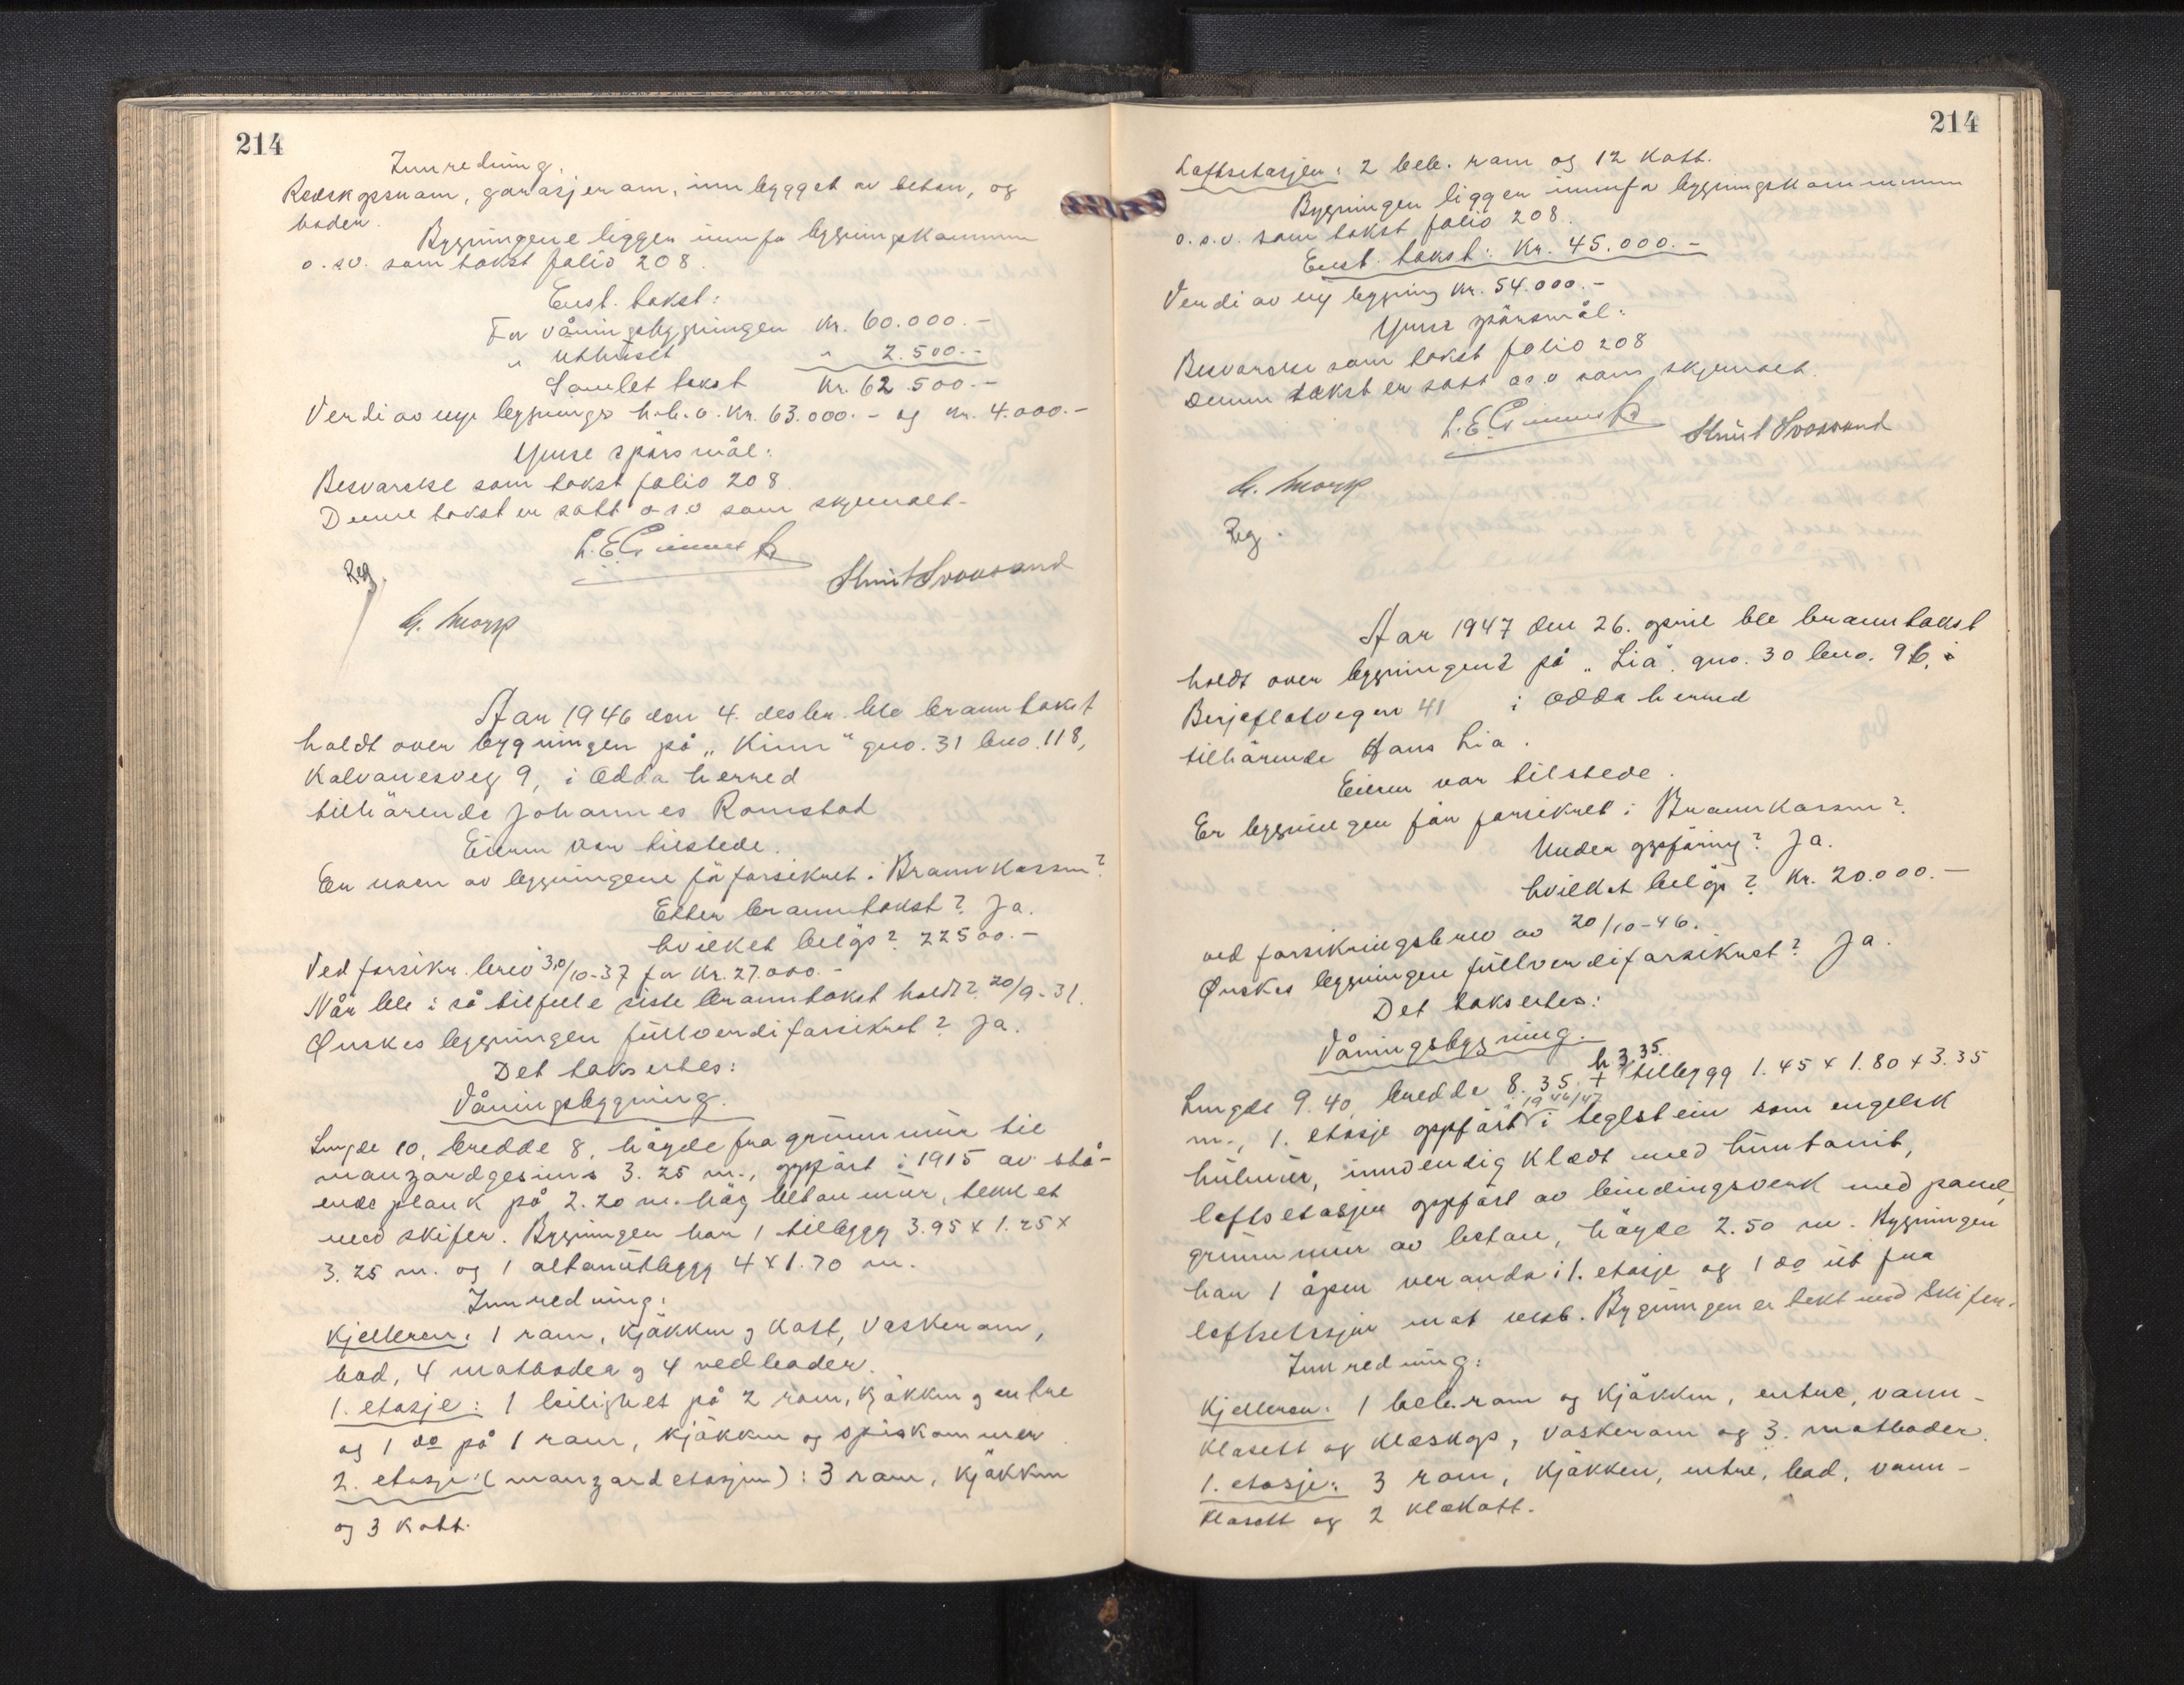 214
Innredning.
Redskapsrom, garasjerom, innbygget av beton, og
boder.
Bygningene ligger innfor bygningskommunen
o.s.v. som takst folio 208.
Enst. takst:
For våningsbygningen kr. 60.000.-
" uthuset " 2.500.-
Samlet takst kr. 62.500.-
Verdi av nye bygninger h.h.v. kr. 63.000.- og kr. 4.000.-
Ymse spørsmål:
Besvarelse som takst folio 208.
Denne takst er satt o.s.v. som skjønnet.
Knut Svovsand
Reg.
Aar 1946 den 4. desbr. ble branntakst
holdt over bygningen på „Kinn" gno. 31 bno. 118,
Kalvanesveg 9, i Odda herred
tilhörende Johannes Romstad
Eieren var tilstede.
Er noen av bygningene för forsikret i Brannkassen?
Etter branntakst? Ja.
hvilket belöp? 22500.-
Ved forsikr. brev 30/10-37 for kr. 27.000.-
Når ble i så tilfelle siste branntakst holdt? 20/9-31.
Ønskes bygningen fullverdiforsikret? Ja.
Det taksertes:
Våningsbygning.
Lengde 10, bredde 8, höyde fra grunnmur til
manzardgesims 3.25 m., oppfört i 1915 av stå-
ende plank på 2.20 m. höy betonmur, tekket
med skifer. Bygningen har 1 tilbygg 3.95 x 1.25 x
3.25 m. og 1 altanutbygg 4 x 1.70 m.
Innredning:
Kjelleren: 1 rom, kjökken og kott, vaskerom,
bad, 4 matboder og 4 vedboder.
1. etasje: 1 leilighet på 2 rom, kjökken og entre
og 1 do på 1 rom, kjökken og spiskammer.
2. etasje: (manzardetasjen): 3 rom, kjökken
og 3 kott.
214
Loftsetasjen: 2 beb. rom og 12 kott.
Bygningen ligger innenfor bygningskommunen
o.s.v. som takst folio 208.
Enst. takst: Kr. 45.000.-
Verdi av ny bygning kr. 54.000.-
Ymse spörsmål:
Besvarelse som takst folio 208
Denne takst er satt o.s.v. som skjønnet.
Knut Svovsand
Reg.
Aar 1947 den 26. april ble branntakst
holdt over bygningene på „Lia" gno. 30 bno. 96, i
Berjeflotvegen 41 i Odda herred
tilhörende Hans Lia.
Eieren var tilstede.
Er bygningen för forsikret i Brannkassen?
Under oppföring? Ja.
hvilket belöp? Kr. 20.000.-
ved forsikringsbrev av 20/10-46.
Ønskes bygningen fullverdiforsikret? Ja.
Det taksertes:
Våningsbygning.
Lengde 9.40, bredde 8.35. h. 3.35. + tilbygg 1.45 x 1.80 x 3.35
m., 1. etasje oppfört 1946/47 i teglstein som engelsk
hulmur, innvendig kledt med huntonit,
loftsetasjen oppfört av bindingsverk med panel,
grunnmur av beton, höyde 2.50 m. Bygningen
har 1 åpen veranda i 1. etasje og 1 do ut fra
loftsetasjen mot vest. Bygningen er tekt med skifer.
Innredning:
Kjelleren: 1 beb. rom og kjökken, entre, vann-
klosett og kleskap, vaskerom og 3 matboder.
1. etasje: 3 rom, kjökken, entre, bad, vann-
klosett og 2 klekott.